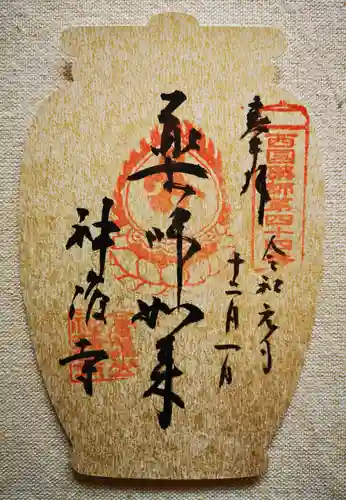 奉拝
西国薬師第四十四番
令和元年
十二月一日
薬師如来
神護寺